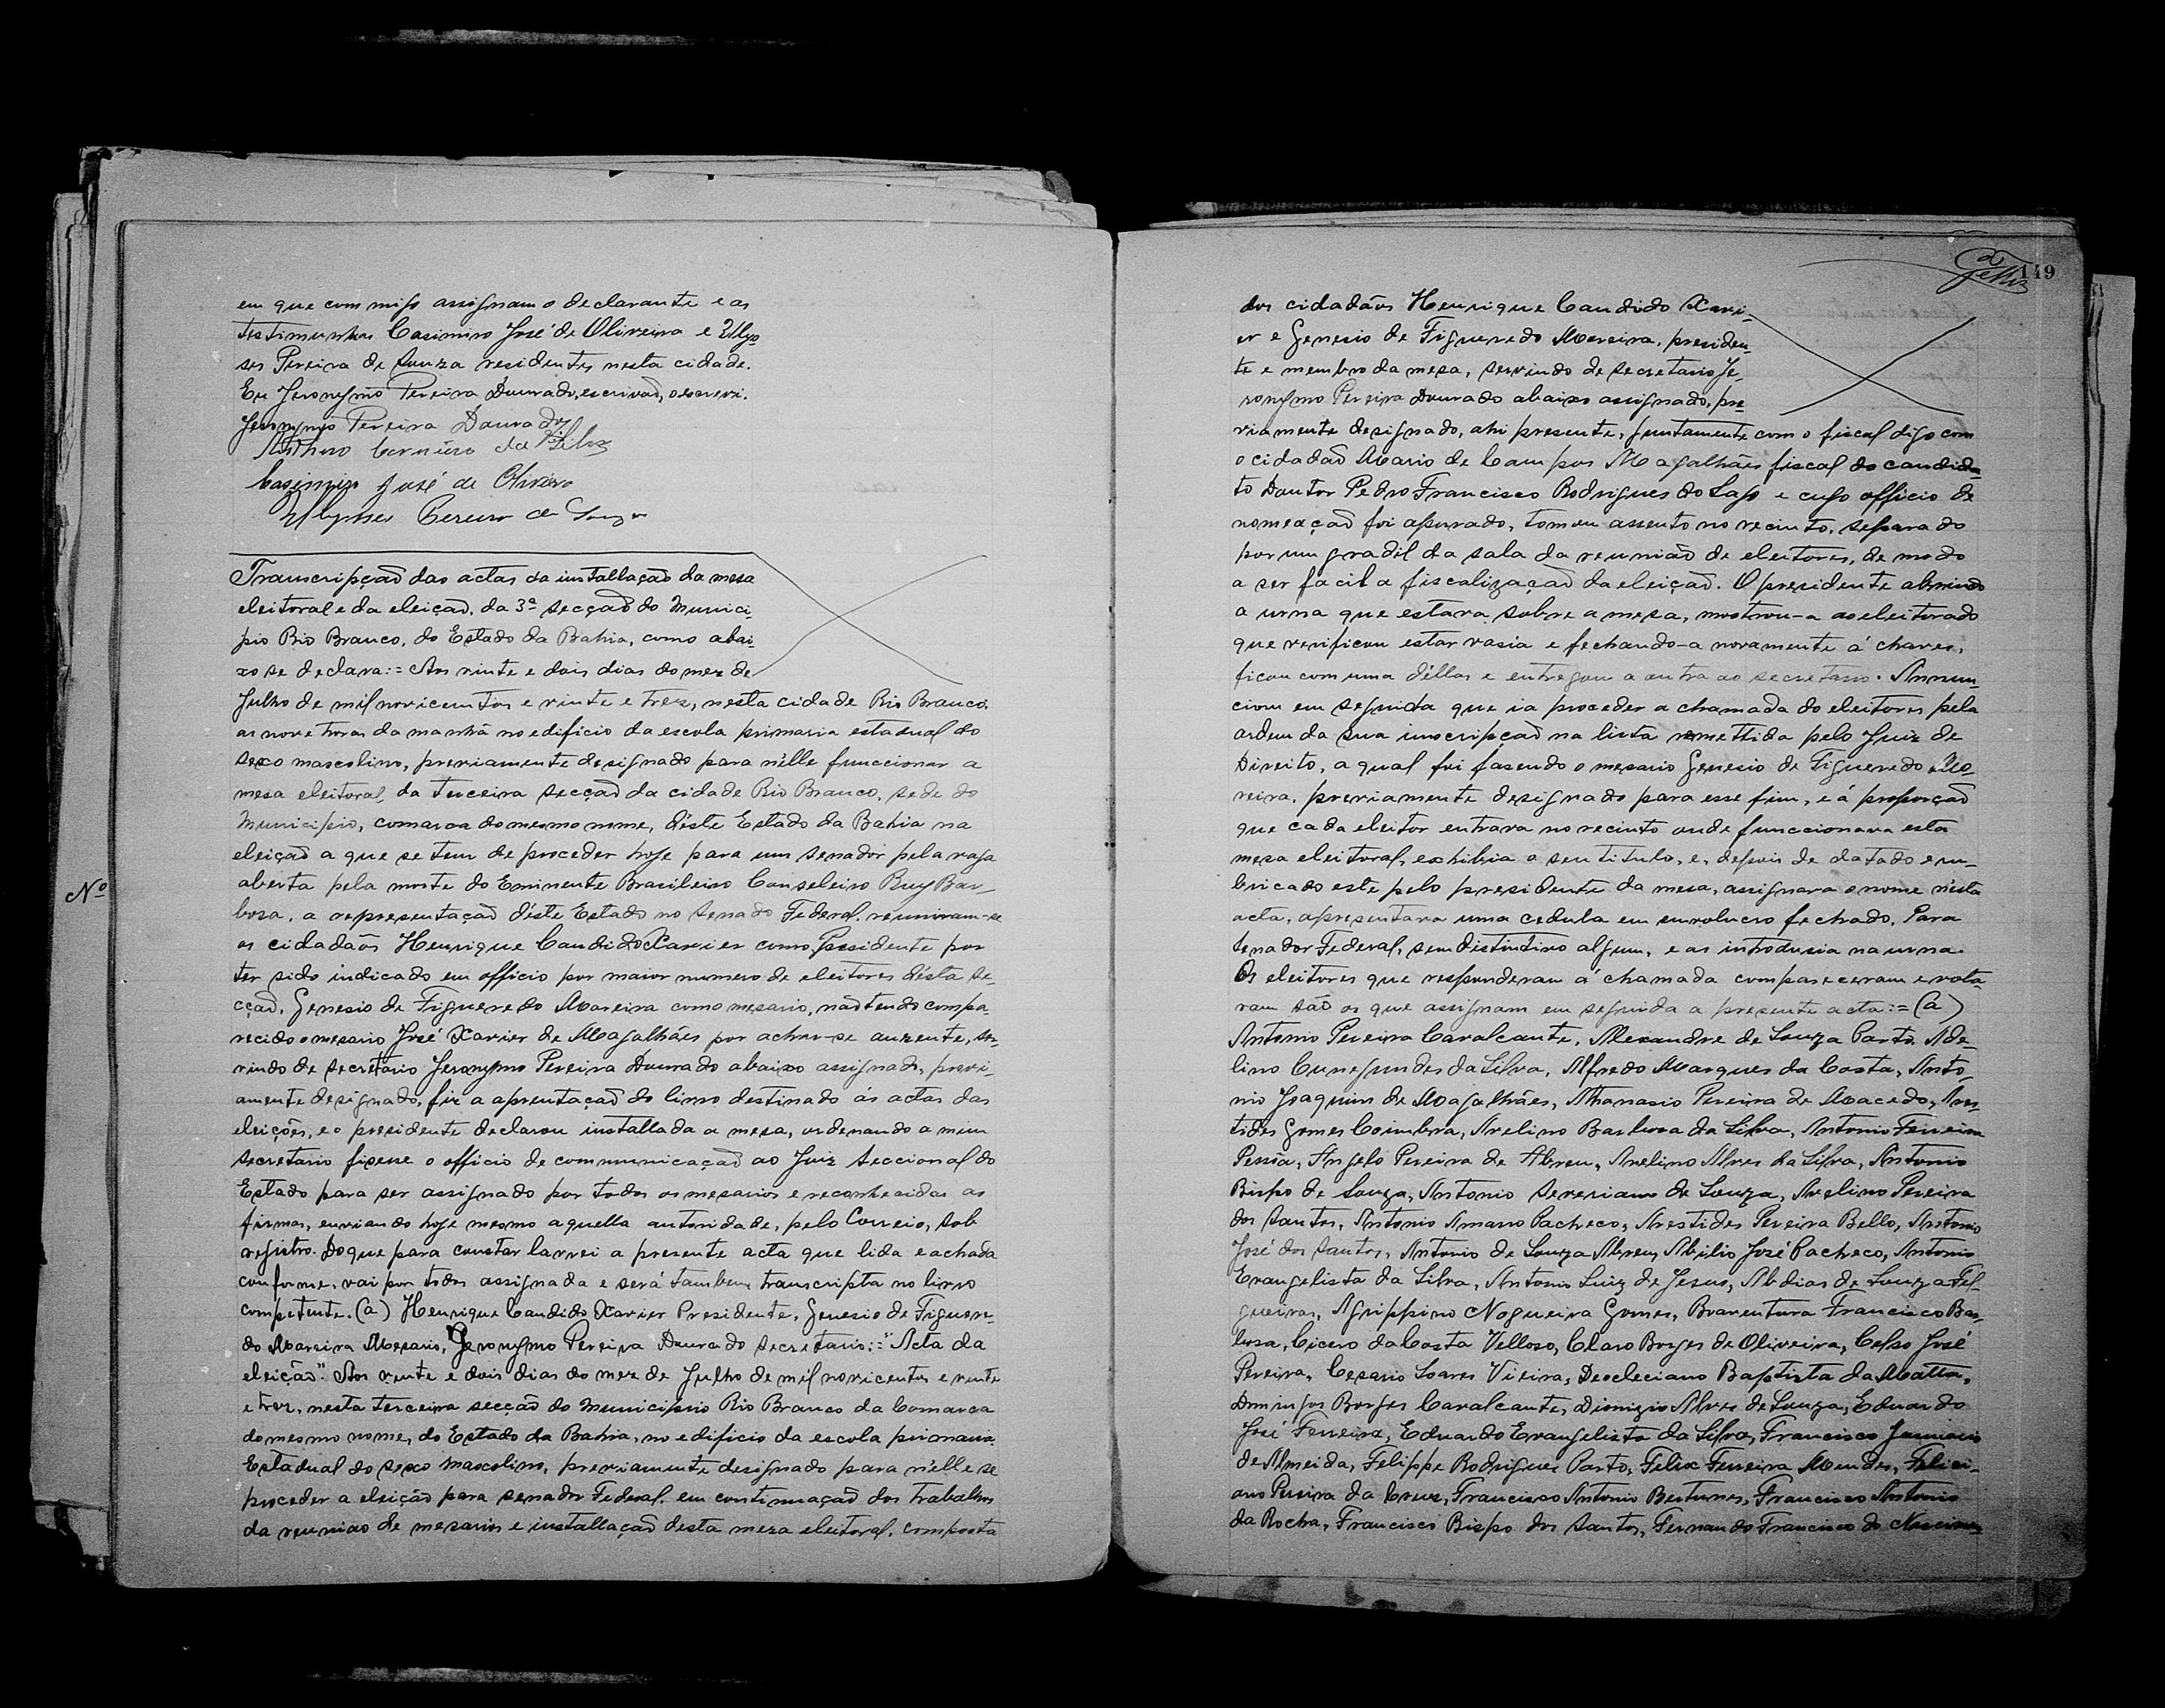 em que commigo assignam o declarante e as
testimunhas Casimiro José de Oliveira e Ulys
ses Pereira de Souza residentes nesta cidade.
Eu Jeronymo Pereira Dourado, escrivaõ, o escrevi.
Jeronymo Pereira Dourado
Arthuro Carneiro da Silva
Casimiro José de Oliveira
Ulysses Pereira de Souza
Transcripçaõ das actas da installaçaõ da mesa
eleitoral e da eleiçaõ, da 3ª secçaõ do Munici-
pio Rio Branco, do Estado da Bahia, como abai-
xo se declara:= Aos vinte e dois dias do mez de
Julho de mil novicentos e vinte e trez, nesta cidade Rio Branco,
as nove horas da manhã no edificio da escola primaria estadual do
sexo masculino, previamente designado para n'élle funccionar a
mesa eleitoral, da terceira secçaõ da cidade Rio Branco, sede do
Municipio, comarca do mesmo nome, d'éste Estado da Bahia na
eleiçaõ a que se tem de proceder hoje para um senador pela vaga
aberta pela morte do Eminente Brasileiro Conseleiro Ruy Bar-
bosa, a representaçaõ d'éste Estado no Senado Federal, reuniram-se
Nº
os cidadãos Henrique Candido Xavier como Presidente por
ter sido indicado em officio por maior numero de eleitores d'ésta se-
cçaõ, Genesio de Figueredo Moreira como mesario, naõ tendo compa-
recido o mesario José Xavier de Magalhães por achar-se auzente, ser-
vindo de secretario Jeronymo Pereira Dourado abaixo assignado, previ-
amente designado, fiz a aprentaçaõ do livro destinado ás actas das
eleições, e o presidente declarou installada a mesa, ordenando a mim
secretario fizesse o officio de communicaçaõ ao Juiz Seccional do
Estado para ser assignado por todos os mesarios e reconhecidas as
firmas, enviando hoje mesmo aquella autoridade, pelo Correio, sob
registro. Do que para constar lavrei a presente acta que lida e achada
conforme, vai por todos assignada e será tambem transcripta no livro
competente. (a) Henrique Candido Xavier Presidente, Genesio de Figuere-
do Moreira Mesario, Jeronymo Pereira Dourado Secretario:= "Acta da
eleição". Aos vinte e dois dias do mez de Julho de mil novicentos e vinte
e trez, nesta terceira secção do Municipio Rio Branco da Comarca
do mesmo nome, do Estado da Bahia, no edificio da escola primaria
Estadual do sexo masculino, previamente designado para n'élle se
proceder a eleição para senador Federal, em continuaçaõ dos trabalhos
da reuniao de mesarios e installaçaõ desta meza eleitoral, composta
149
dos cidadãos Henrique Candido Xavi-
er e Genesio de Figueredo Moreira, presiden-
te e membro da mesa, servindo de secretario Je-
ronymo Pereira Dourado abaixo assignado, pre-
viamente designado, ahi presente, juntamente com o fiscal digo com
o cidadaõ Mario de Campos Magalhães fiscal do candida-
to Doutor Pedro Francisco Rodrigues do Lago e cujo officio de
nomeaçaõ foi apurado, tomou assento no recinto, separado
por um gradil da sala da reuniaõ de eleitores, de modo
a ser facil a fiscalizaçaõ da eleiçaõ. O presidente abrindo
a urna que estava sobre a mesa, mostrou-a ao eleitorado
que verificou estar vasia e fechando-a novamente á chaves,
ficou com uma d'éllas e entregou a outra ao secretario. Annun-
ciou em seguida que ia proceder a chamada do eleitores pela
ordem da sua inscripçaõ na lista remettida pelo Juiz de
Direito, a qual foi fasendo o mesario Genesio de Figueredo Mo-
reira, previamente designado para esse fim, e á proporçaõ
que cada eleitor entrava no recinto onde funccionava esta
mesa eleitoral, exhibia o seu titulo, e, depois de datado e ru-
bricado este pelo presidente da mesa, assignava o nome n'ésta
acta, apresentava uma cedula em envolucro fechado, Para
senador Federal, sem distintivo algum, e as introdusia na urna.
Os eleitores que responderam á chamada compareceram e vota-
ram saõ os que assignam em seguida a presente acta:= (a)
Antonio Pereira Cavalcante, Alexandre de Souza Porto, Ade-
lino Cunegundes da Silva, Alfredo Marques da Costa, Anto-
nio Joaquim de Magalhães, Athanasio Pereira de Macedo, Ares-
tides Gomes Coimbra, Avelino Barbosa da Silva, Antonio Ferreira
Pessôa, Angelo Pereira de Abreu, Avelino Alves da Silva, Antonio
Bispo de Souza, Antonio Severiano de Souza, Avelino Pereira
dos Santos, Antonio Amaro Pacheco, Arestides Pereira Bello, Antonio
José dos Santos, Antonio de Souza Abreu, Abilio José Pacheco, Antonio
Evangelista da Silva, Antonio Luiz de Jesus, Abdias de Souza Fel-
gueiras, Agrippino Nogueira Gomes, Boaventura Francisco Bar-
bosa, Cicero da Costa Velloso, Claro Borges de Oliveira, Celso José
Pereira, Cesario Soares Vieira, Deocleciano Baptista da Matta,
Domingos Borges Cavalcante, Dionizio Alves de Souza, Eduardo
José Ferreira, Eduardo Evangelista da Silva, Francisco Januario
de Almeida, Felippe Rodrigues Porto, Felix Ferreira Mendes, Felici-
ano Pereira da Cruz, Francisco Antonio Bertunes, Francisco Antonio
da Rocha, Francisco Bispo dos Santos, Fernando Francisco do Nascimen-